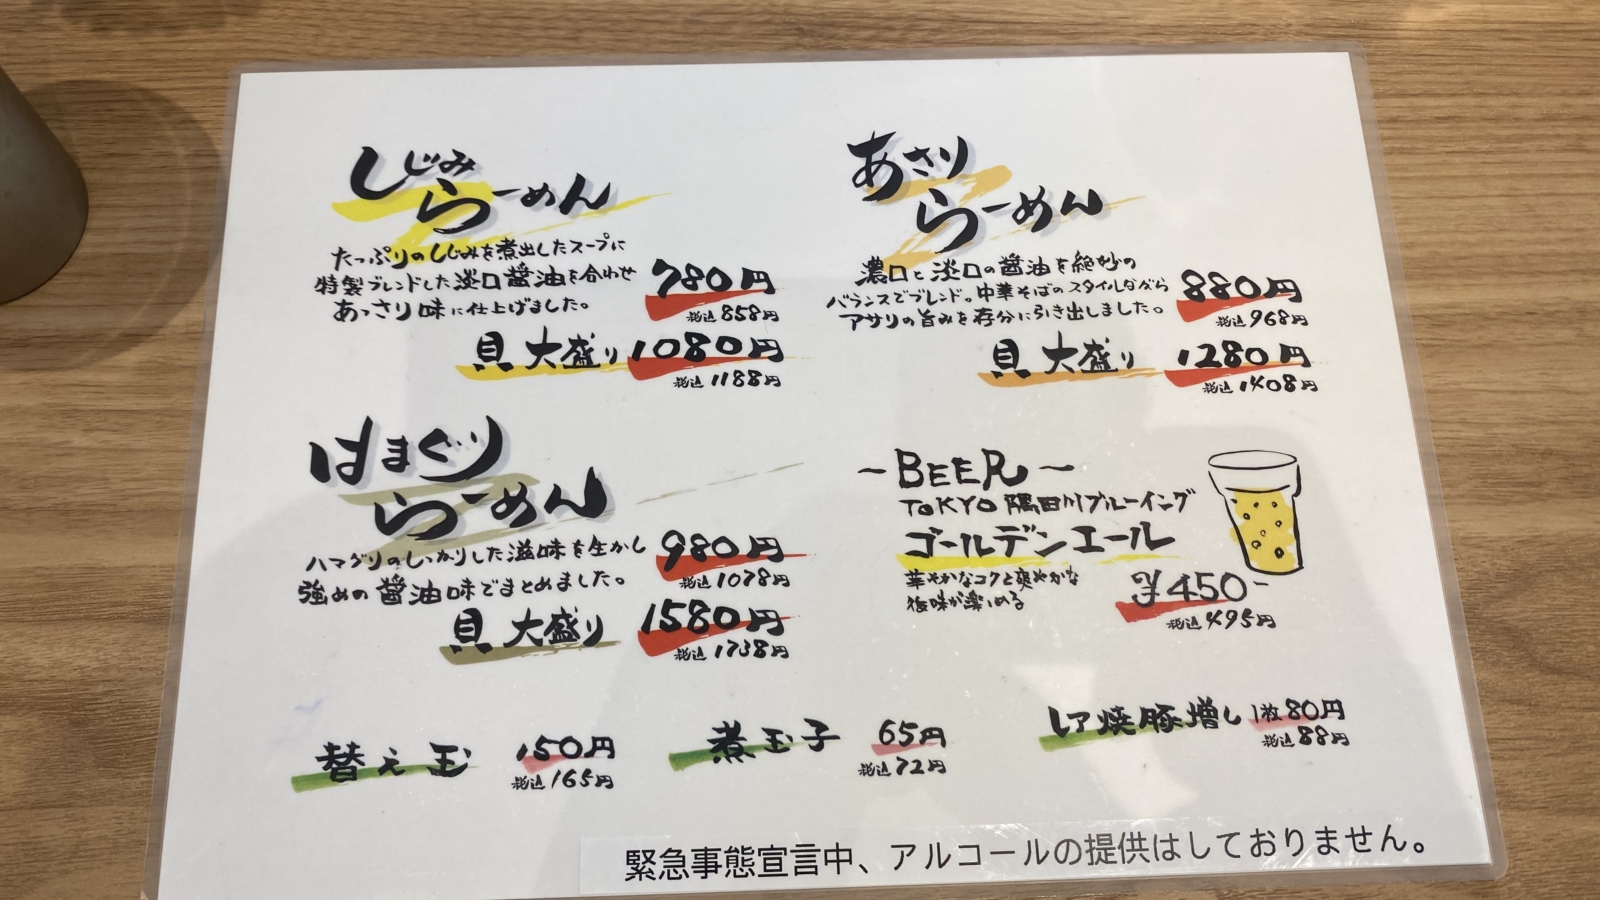 しじみ
らーめん
たっぷりのしじみを煮出したスープに
特製ブレンドした淡口醤油を合わせ
あっさり味に仕上げました。
780円
税込858円
貝大盛り1080円
税込1188円
あさり
らーめん
濃口と淡口の醤油を絶妙の
バランスでブレンド。中華そばのスタイルながら
アサリの旨みを存分に引き出しました。
880円
税込968円
貝大盛り1280円
税込1408円
はまぐり
らーめん
ハマグリのしっかりした滋味を生かし
強めの醤油味でまとめました。
980円
税込1078円
貝大盛り1580円
税込1738円
~BEER~
TOKYO隅田川ブルーイング
ゴールデンエール
華やかなコクと爽やかな
後味が楽しめる
¥450-
税込495円
替え玉 150円
税込165円
煮玉子 65円
税込72円
レア焼豚増し 1枚80円
税込88円
緊急事態宣言中、アルコールの提供はしておりません。